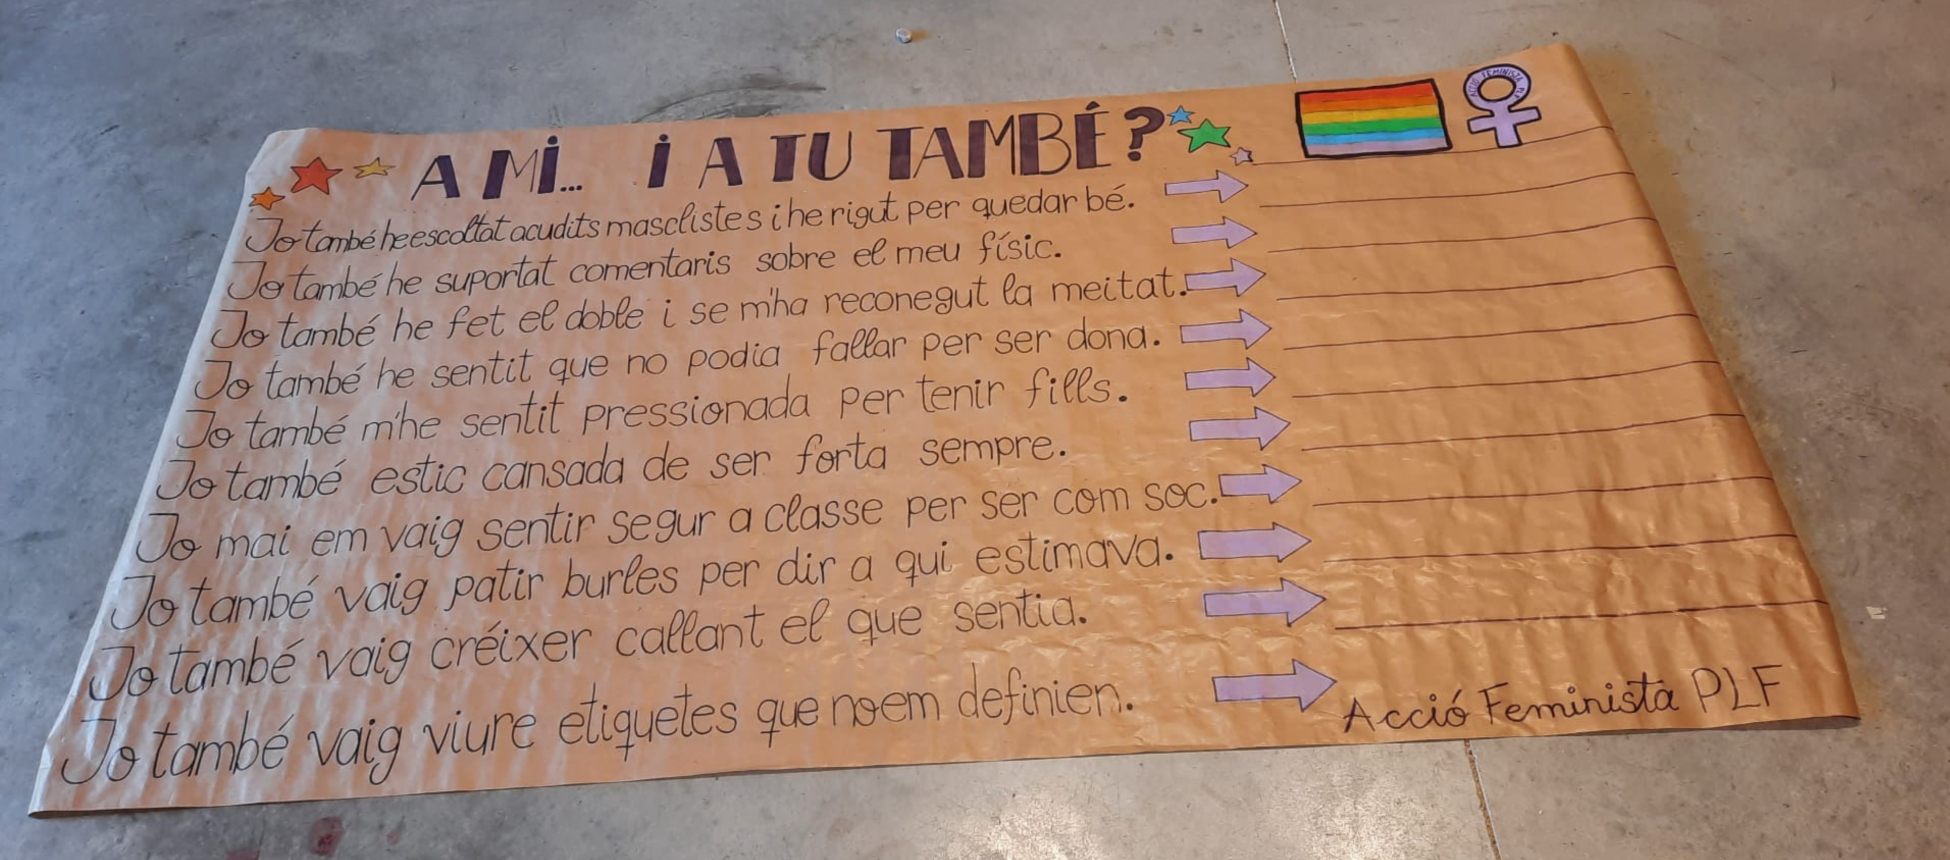 A MI... I A TU TAMBÉ?
ACCIÓ FEMINISTA PLF
Jo també he escoltat acudits masclistes i he rigut per quedar bé.
Jo també he suportat comentaris sobre el meu físic.
Jo també he fet el doble i se m'ha reconegut la meitat.
Jo també he sentit que no podia fallar per ser dona.
Jo també m'he sentit pressionada per tenir fills.
Jo també estic cansada de ser forta sempre.
Jo mai em vaig sentir segur a classe per ser com soc.
Jo també vaig patir burles per dir a qui estimava.
Jo també vaig créixer callant el que sentia.
Jo també vaig viure etiquetes que no em definien.
Acció Feminista PLF